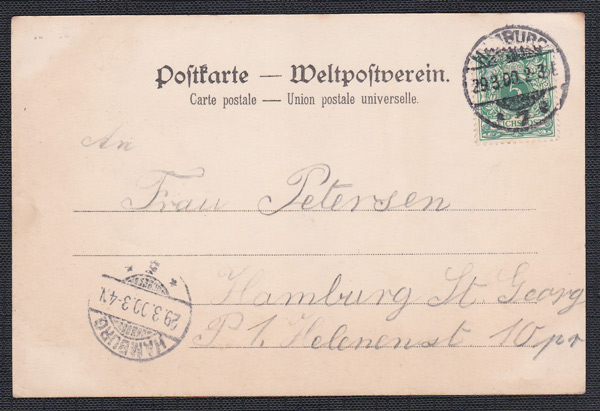 Postkarte — Weltpostverein.
Carte postale — Union postale universelle.
HAMBURG
29.3.00.2-3
7
5
An
Frau Petersen
Hamburg St. Georg
P. 1. Helenenst. 10 pr
HAMBURG
29.3.00.3-4N